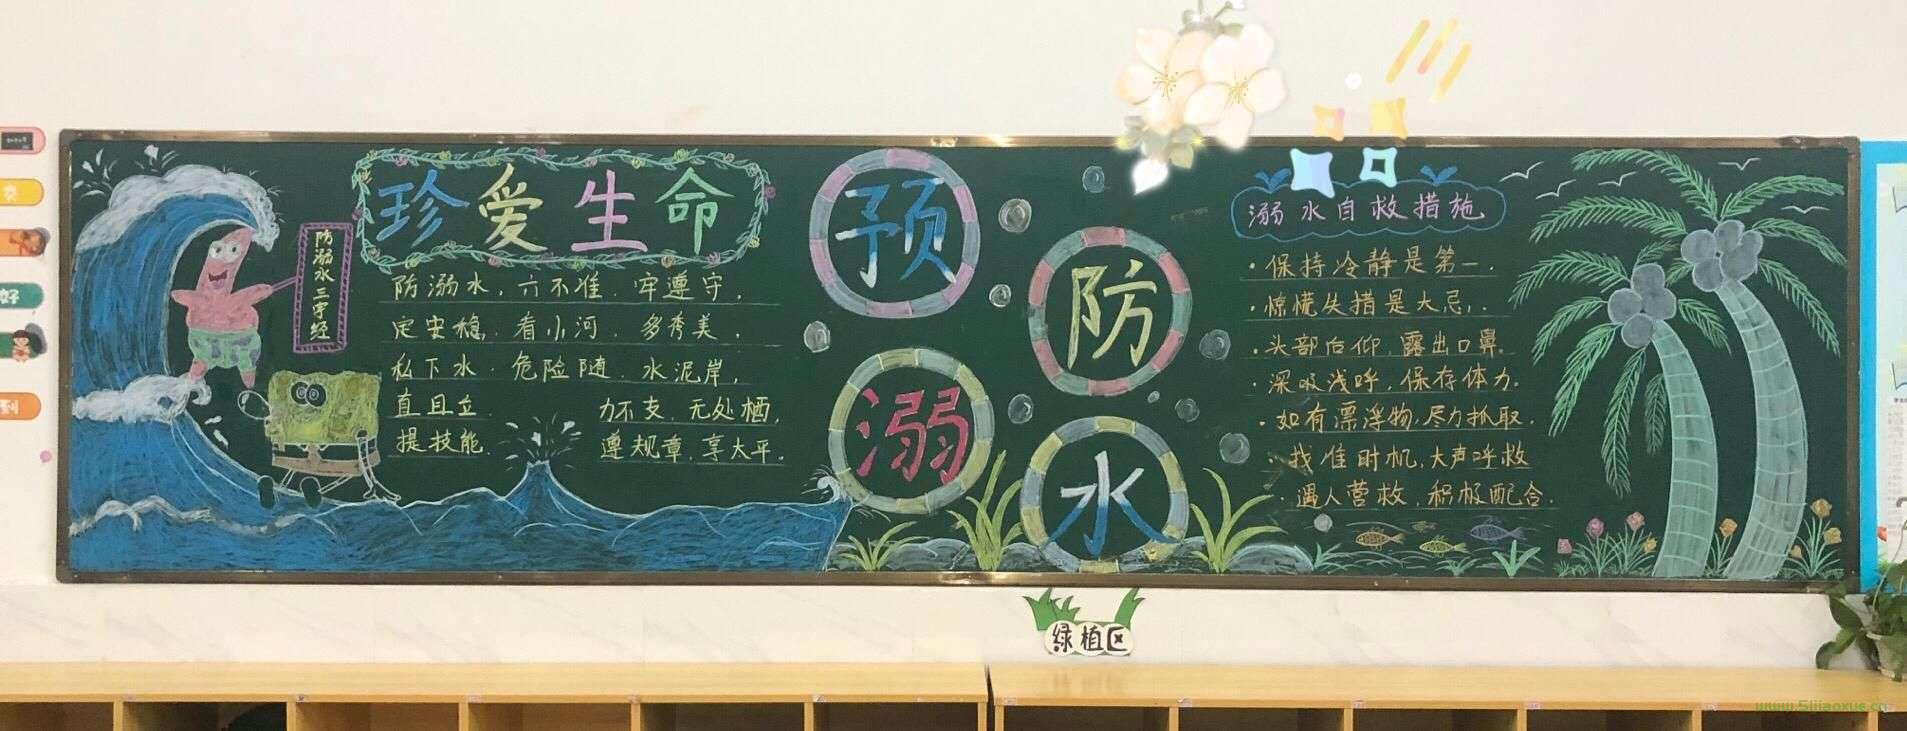 珍爱生命
防溺水三字经
防溺水，六不准，牢遵守，
定安稳，看小河，多秀美，
私下水，危险随，水泥岸，
直且立，力不支，无处栖，
提技能，遵规章，享太平。
预防溺水
溺水自救措施
·保持冷静是第一.
·惊慌失措是大忌，.
·头部后仰，露出口鼻.
·深吸浅呼，保存体力.
·如有漂浮物，尽力抓取.
·找准时机，大声呼救
·遇人营救，积极配合.
绿植区
好
到
www.5ijiaoxue.cn